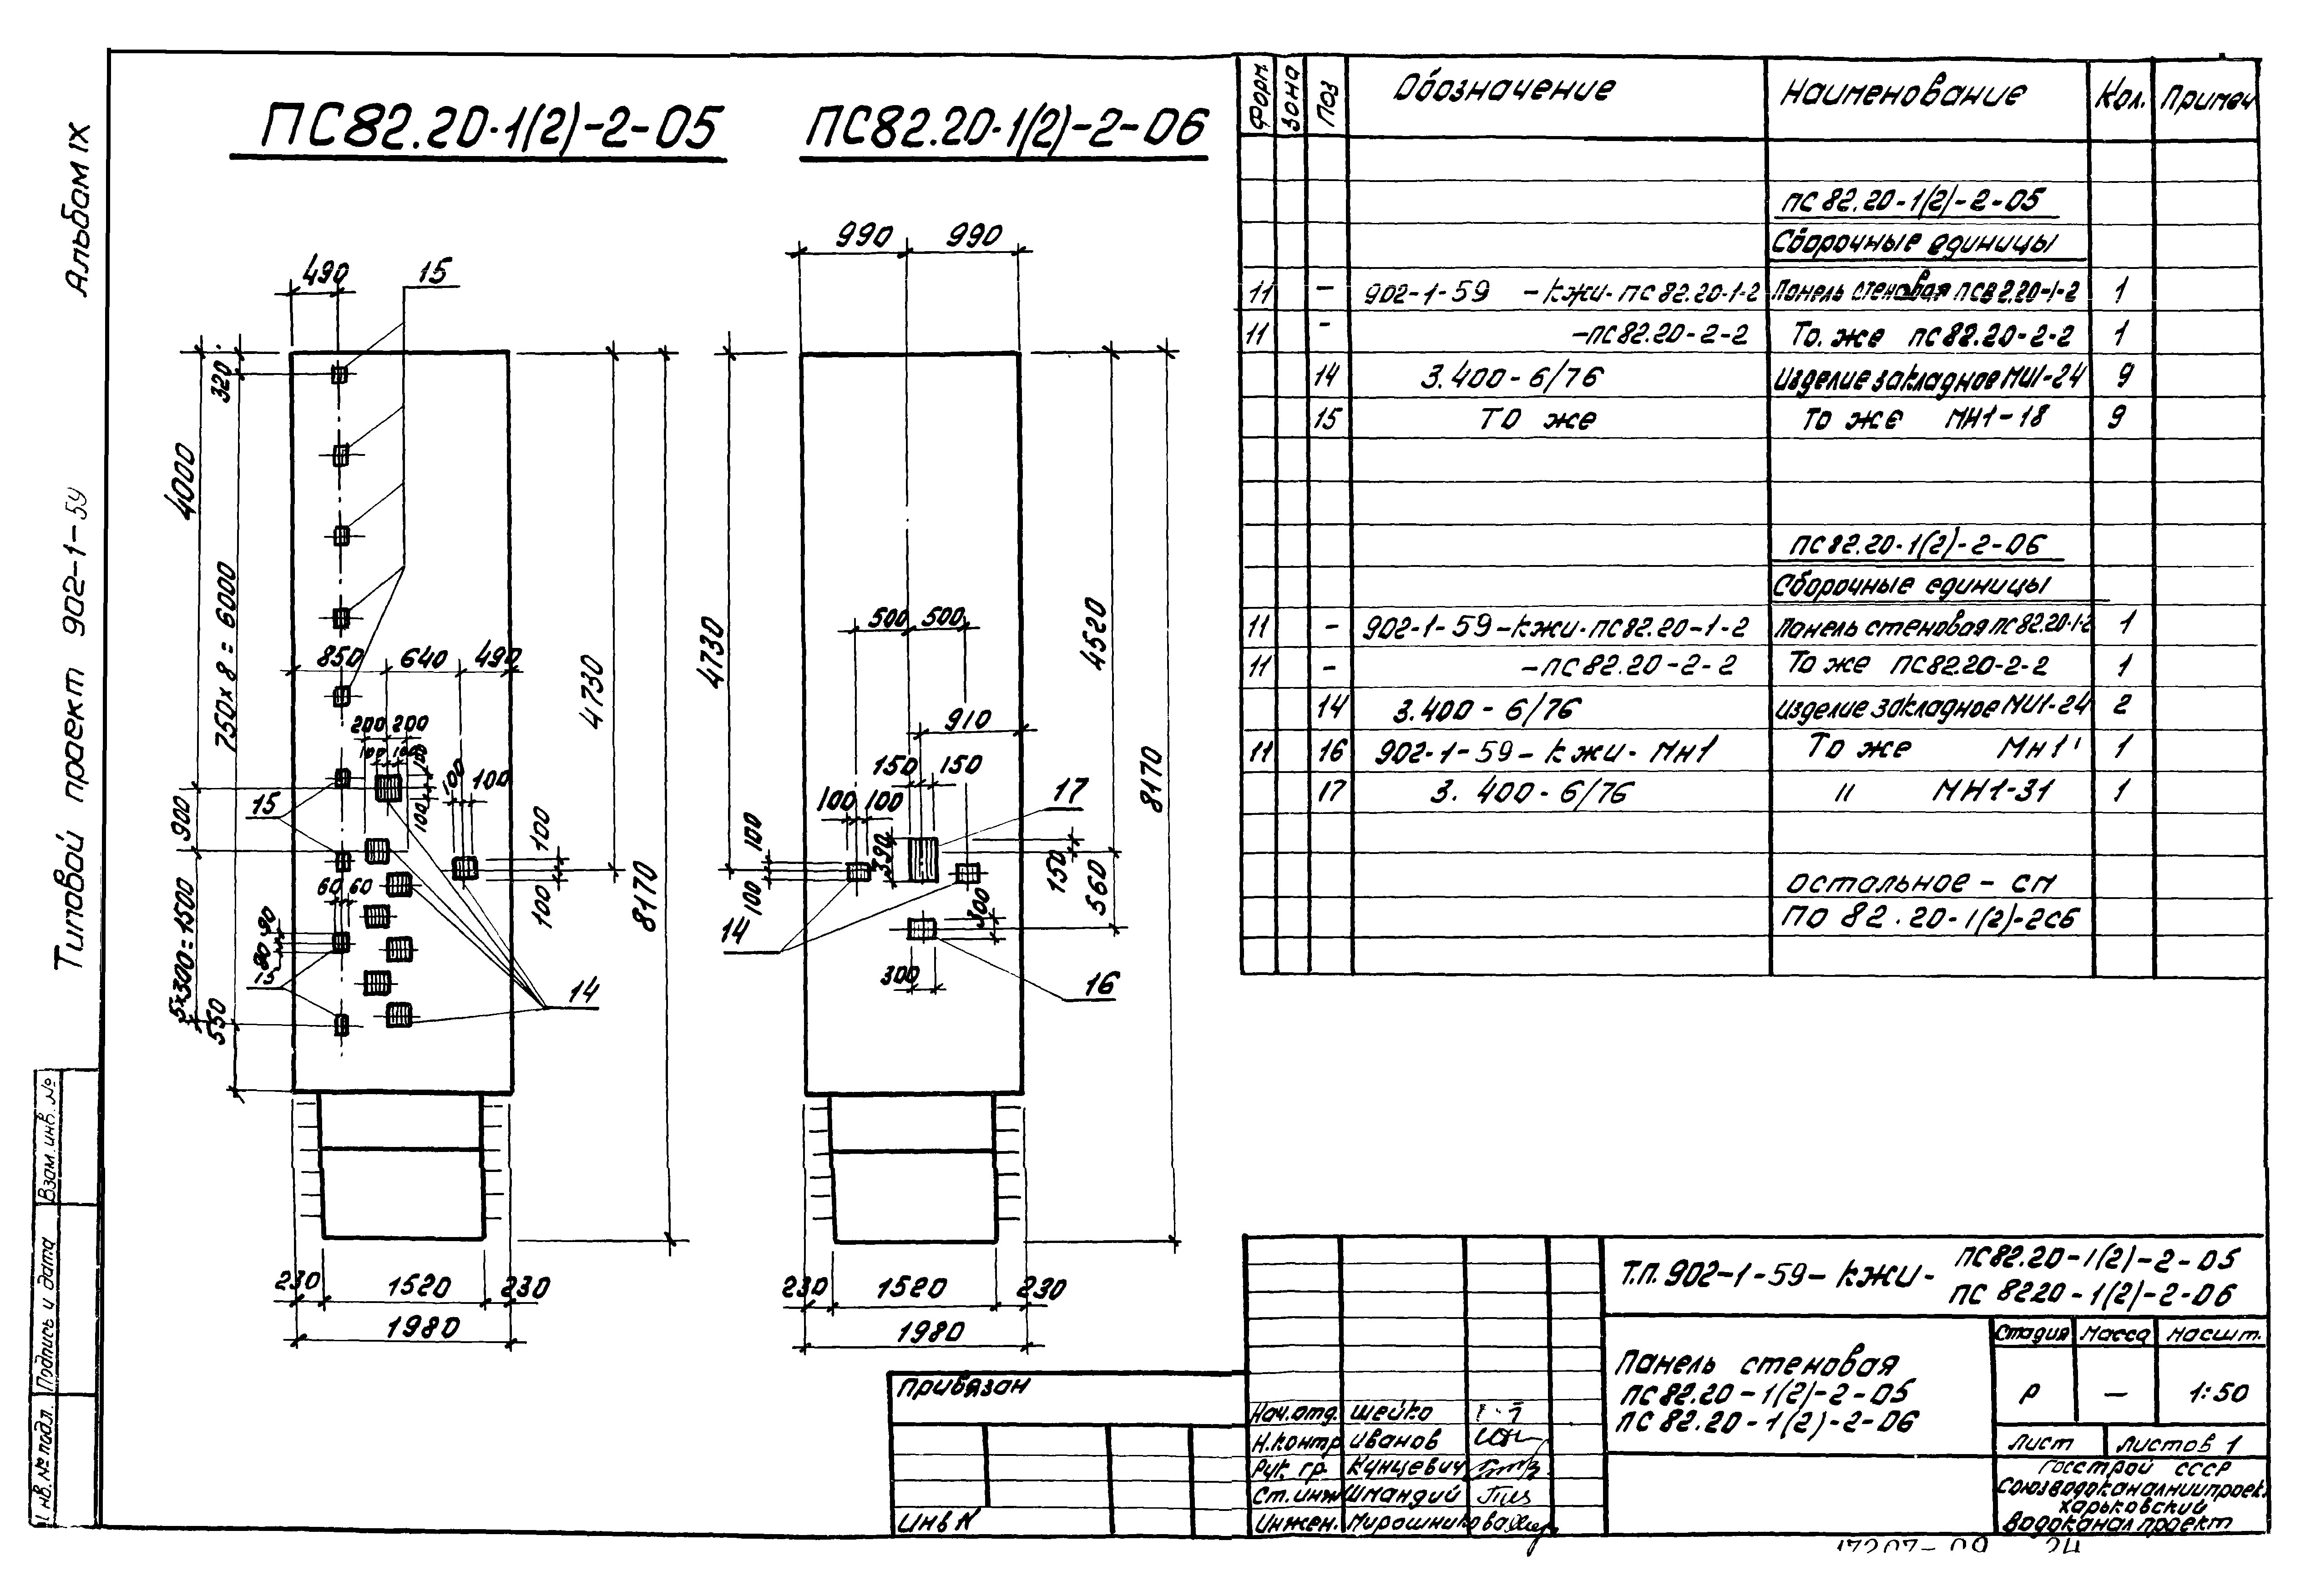 Альбом IX
Типовой проект 902-1-59
ПС82.20-1(2)-2-05
490
15
320
4000
750×8=6000
850 640 490
4730
200 200
100 100
100
100
100 100
15
900
100
100
60 60
90
90
15
5×300=1500
550
14
8170
230 1520 230
1980
ПС82.20-1(2)-2-06
990 990
4730
500 500
4520
910
150 150
17
100 100
390
100
100
150
560
300
14
300
16
8170
230 1520 230
1980
Форм. Зона Поз Обозначение Наименование Кол. Примеч
ПС 82.20-1(2)-2-05
Сборочные единицы
11 - 902-1-59 -КЖИ-ПС 82.20-1-2 Панель стеновая ПС82.20-1-2 1
11 - -ПС82.20-2-2 То же ПС82.20-2-2 1
14 3.400-6/76 Изделие закладное МИ1-24 9
15 То же То же МН1-18 9
ПС82.20-1(2)-2-06
Сборочные единицы
11 - 902-1-59-КЖИ-ПС82.20-1-2 Панель стеновая ПС82.20-1-2 1
11 - -ПС82.20-2-2 То же ПС82.20-2-2 1
14 3.400-6/76 Изделие закладное МИ1-24 2
11 16 902-1-59-КЖИ-МН1 То же МН1 1
17 3.400-6/76 " МН1-31 1
Остальное - см
ПО 82.20-1(2)-2СБ
Т.П.902-1-59-КЖИ- ПС82.20-1(2)-2-05
ПС 8220-1(2)-2-06
Панель стеновая
ПС82.20-1(2)-2-05
ПС82.20-1(2)-2-06
Стадия Масса Масшт.
Р — 1:50
Лист Листов 1
Госстрой СССР
Союзводоканалниипроект
Харьковский
Водоканалпроект
Привязан
Инв N
Нач.отд. Шейко
Н.контр Иванов
Рук. гр. Кунцевич
Ст.инж Шмандий
Инжен. Мирошникова
Взам. инв. №
Подпись и дата
Инв. № подл.